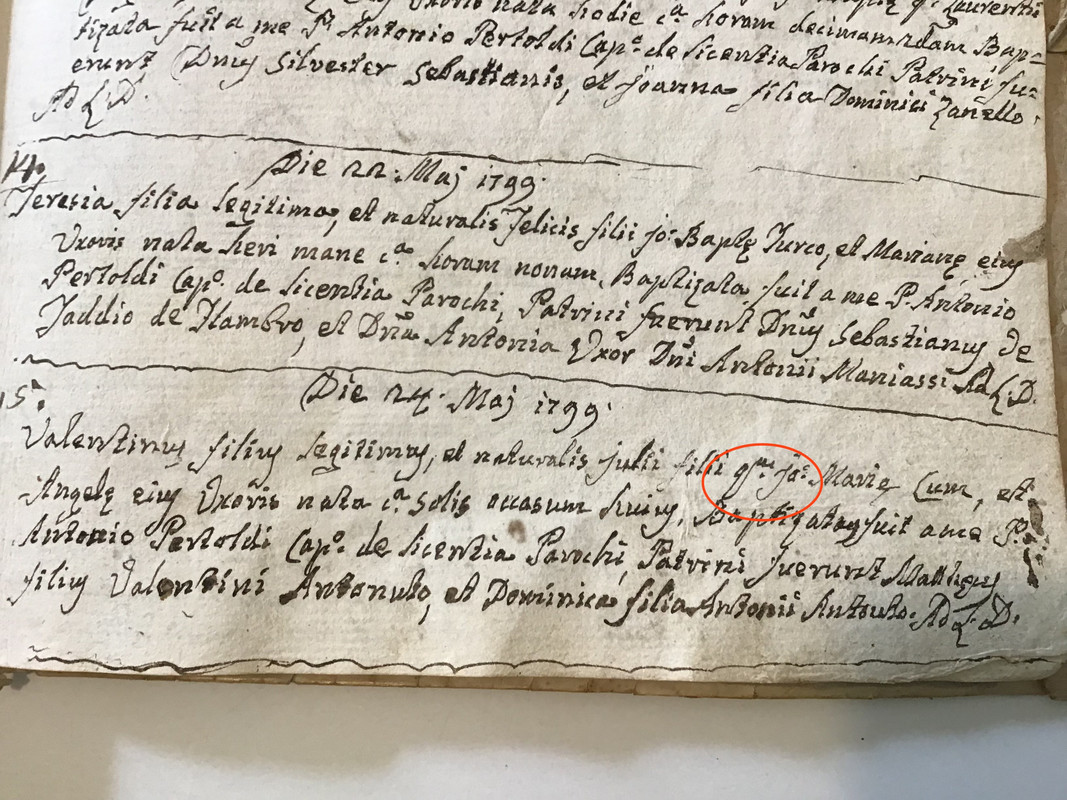 Uxoris nata hodie c.ª horam decimam Bap=
tizata fuit a me P. Antonio Pertoldi Cap.º de licentia Parochi Patrini fu=
erunt Dnuus Silvester Sebastianis, et Joanna filia Dominici Zanello.
Ad L. D.
14.
Die 22. Maj 1799.
Teresia filia legitima, et naturalis Felicis filii Jo: Baptę Turco, et Marianę ejus
Uxoris nata heri mane c.ª horam nonam, Baptizata fuit a me P. Antonio
Pertoldi Cap.º de licentia Parochi, Patrini fuerunt Dnus Sebastianus de
Taddio de Flambro, et Dna Antonia Uxor Dni Antonii Maniassi Ad L. D.
15.
Die 24. Maj 1799.
Valentinus filius legitimus, et naturalis Julii filii Jo: Marię Cum, et
Angelę ejus Uxoris nata c.ª solis occasum hujus, Baptizatus fuit a me P.
Antonio Pertoldi Cap.º de licentia Parochi, Patrini fuerunt Matthęus
filius Valentini Antonuto, et Dominica filia Antonii Antonuto. Ad L. D.